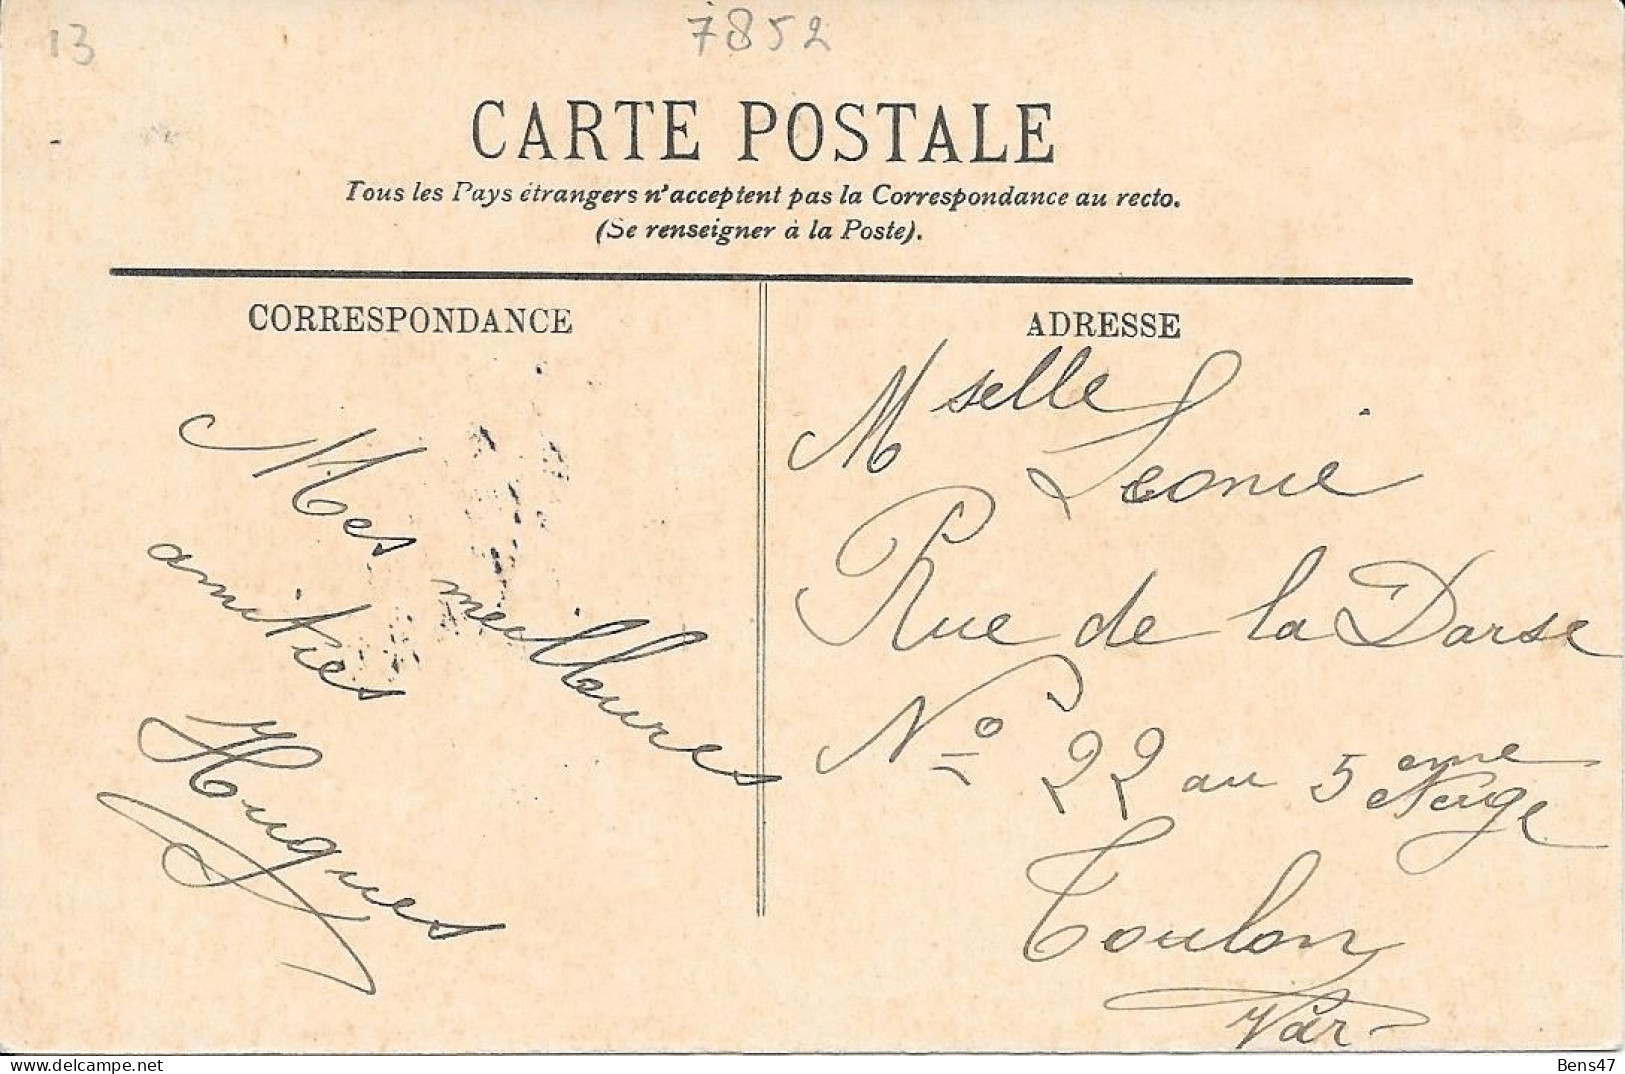 13
7852
CARTE POSTALE
Tous les Pays étrangers n'acceptent pas la Correspondance au recto.
(Se renseigner à la Poste).
CORRESPONDANCE
Mes meilleures
amitiés
Hugues
ADRESSE
Mselle Leonie
Rue de la Darse
No 22 au 5eme
Toulon
Var
Bens47